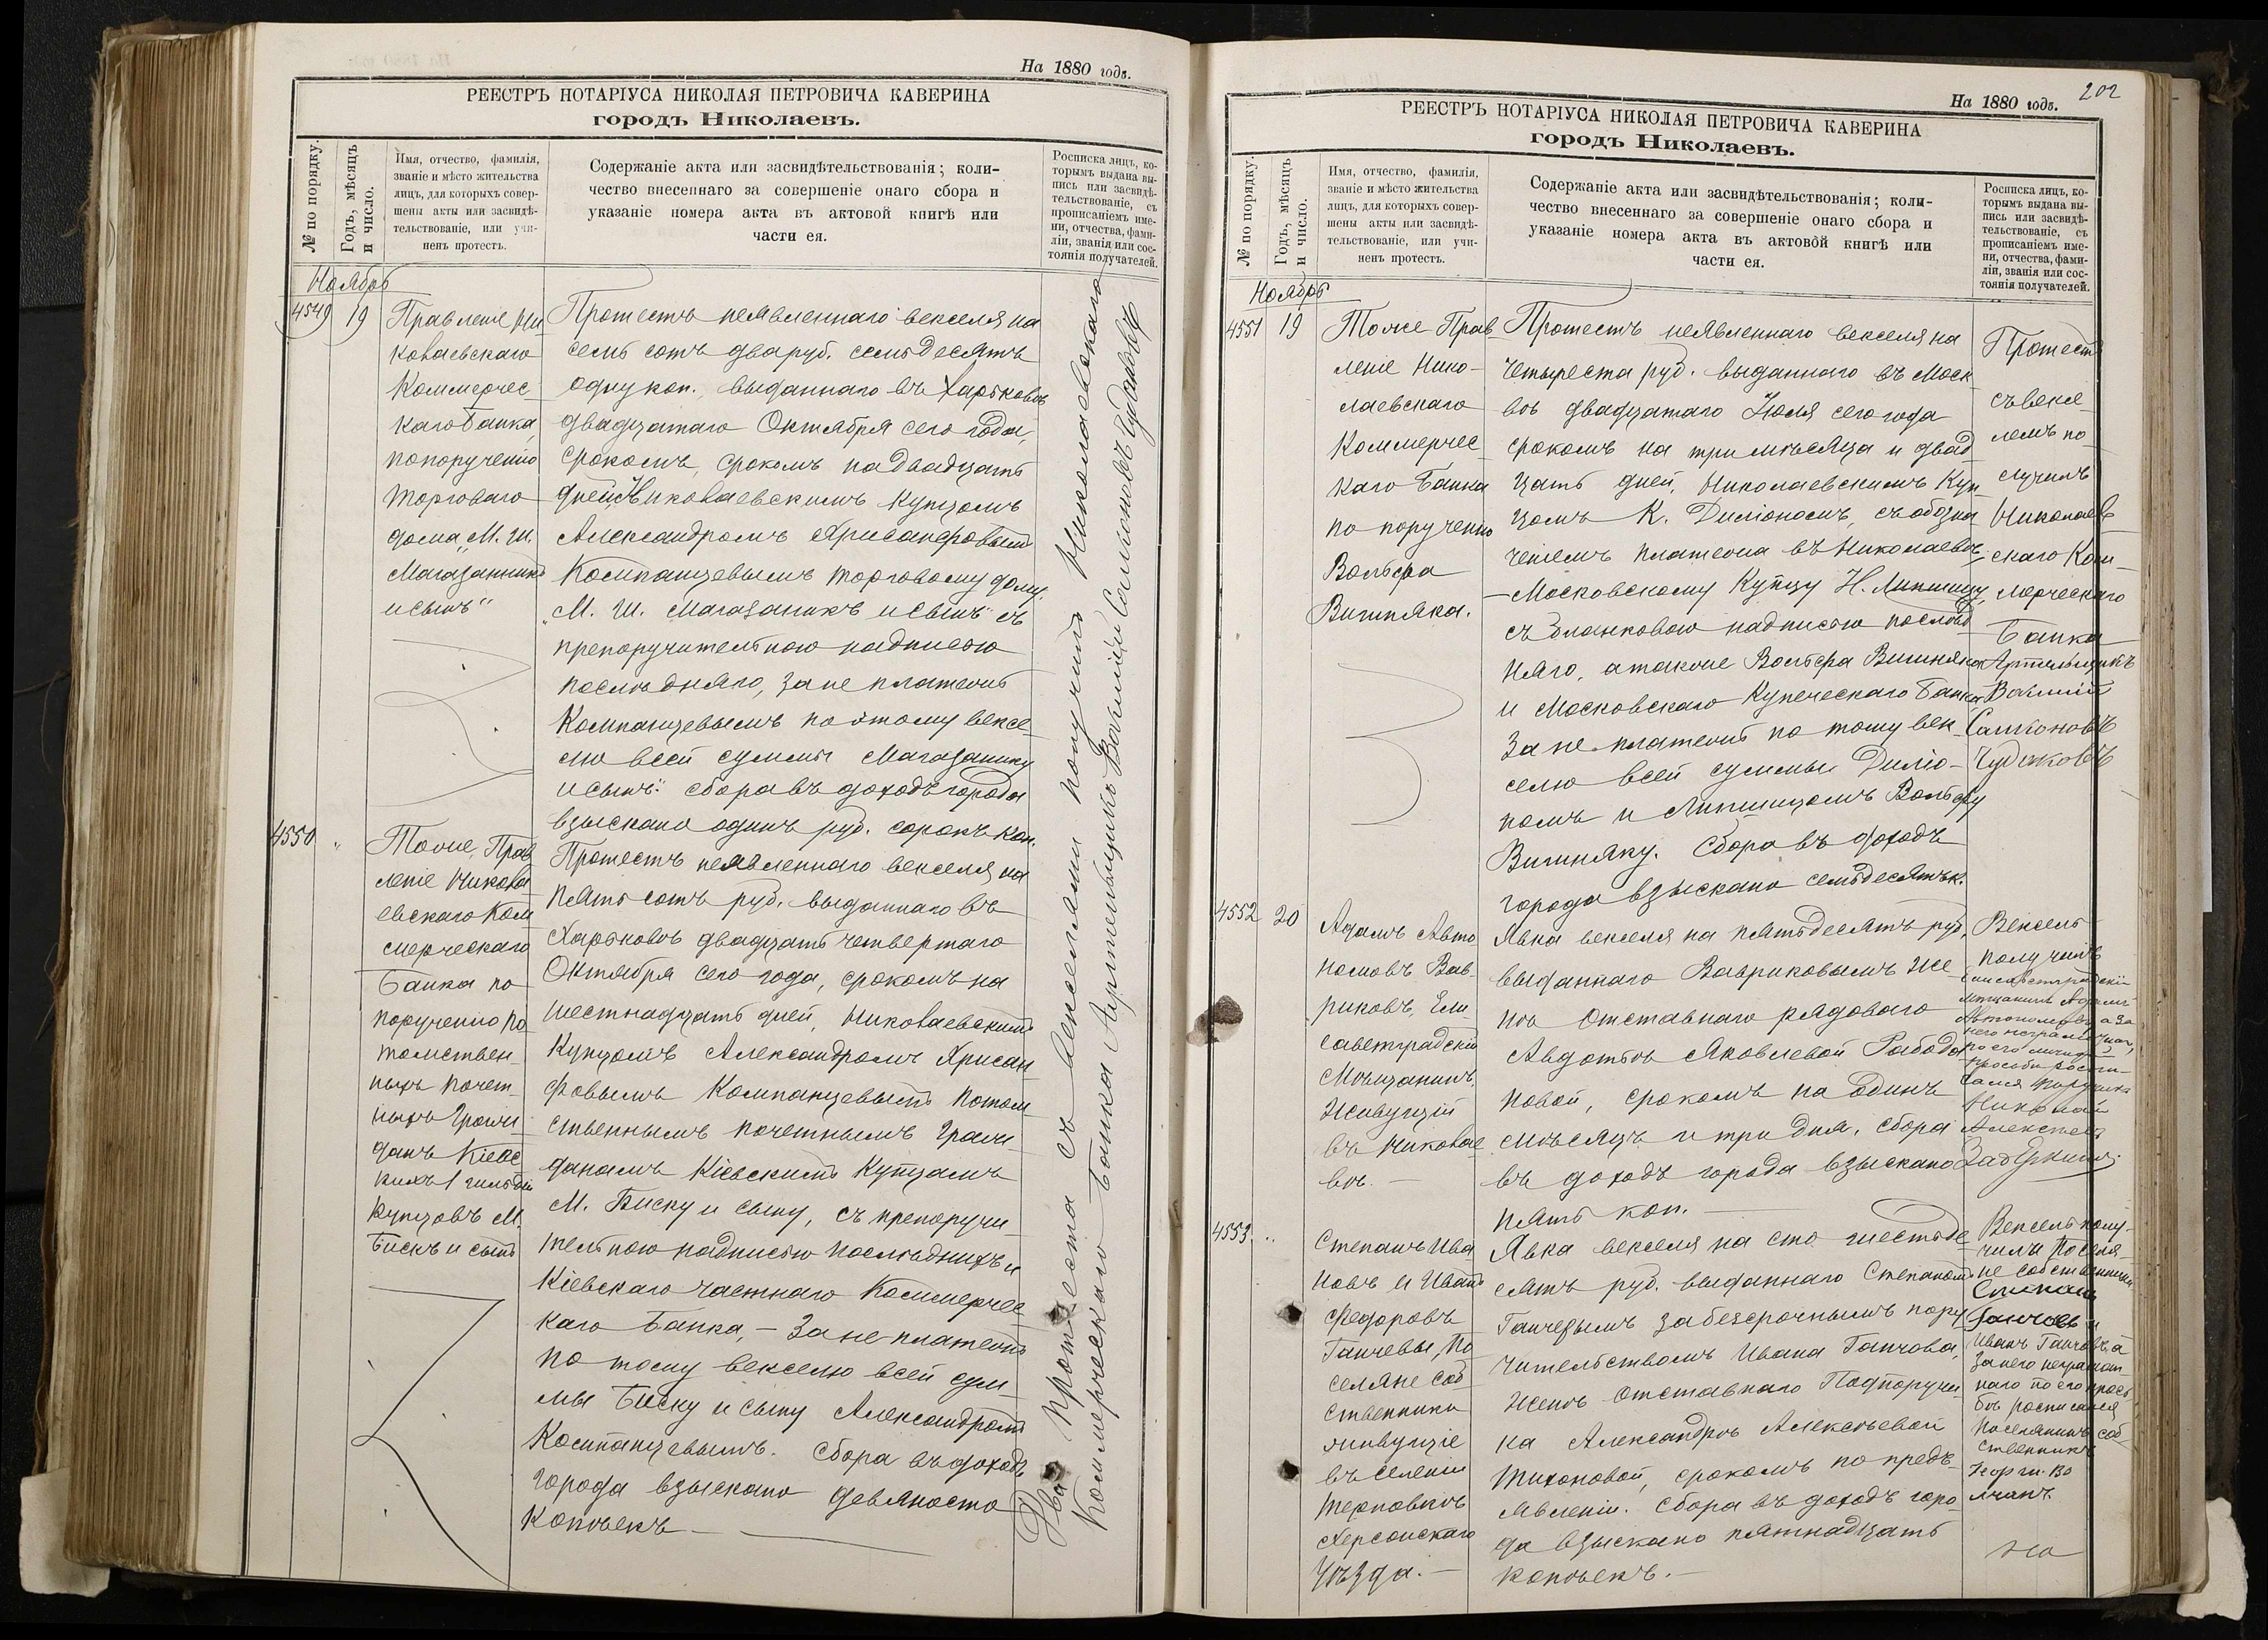 На 1880 годъ.
РЕЕСТРЪ НОТАРІУСА НИКОЛАЯ ПЕТРОВИЧА КАВЕРИНА
городъ Николаевъ.
№ по порядку.
Годъ, мѣсяцъ
и число.
Имя, отчество, фамилія,
званіе и мѣсто жительства
лицъ, для которыхъ совер-
шены акты или засвидѣ-
тельствованіе, или учи-
ненъ протестъ.
Содержаніе акта или засвидѣтельствованія; коли-
чество внесеннаго за совершеніе онаго сбора и
указаніе номера акта въ актовой книгѣ или
части ея.
Росписка лицъ, ко-
торымъ выдана вы-
пись или засвидѣ-
тельствованіе, съ
прописаніемъ име-
ни, отчества, фами-
ліи, званія или сос-
тоянія получателей.
Ноябрь
4549
19
Правленіе Ни
колаевскаго
Коммерчес
каго Банка,
по порученію
Торговаго
дома „М. Ш.
Магазанникъ
и сынъ"
Протестъ неявленнаго векселя на
семь сотъ два руб. семьдесятъ
одну коп., выданнаго въ Харьковѣ
двадцатаго Октября сего года,
срокомъ, срокомъ на двадцать
дней, Николаевскимъ Купцомъ
Александромъ Хрисанфовым
Компанцевымъ торговому дому
„М. Ш. Магазаникъ и сынъ" съ
препоручительною надписью
послѣдняго, за не платежъ
Компанцевымъ по этому вексе-
лю всей суммы Магазанику
и сынъ". Сбора въ доходъ города
взыскано одинъ руб. сорокъ коп.
4550
"
Тоже Прав
леніе Никола
евскаго Ком
мерческаго
Банка по
порученію по
томствен-
ныхъ почет-
ныхъ Граж-
данъ Кіевс
кихъ 1 гильдіи
Купцовъ М.
Бискъ и сынъ
Протестъ неявленнаго векселя на
пять сотъ руб. выданнаго въ
Харьковѣ двадцать четвертаго
Октября сего года, срокомъ на
шестнадцать дней, Николаевскимъ
Купцомъ Александромъ Хрисан-
фовымъ Компанцевымъ Потом
ственнымъ почетнымъ Граж
данамъ Кіевскимъ Купцамъ
М. Биску и сыну, съ препоручи
тельною надписью послѣднихъ и
Кіевскаго частнаго Коммерчес
каго Банка, – За не платежъ
по тому векселю всей сум-
мы Биску и сыну Александромъ
Компанцевымъ. Сбора въ доходъ
города взыскано девяносто
копѣекъ
Два протеста съ векселями получилъ Николаевскаго
Коммерческаго Банка Артельщикъ Василій Самсоновъ Чудаковъ
202
На 1880 годъ.
РЕЕСТРЪ НОТАРІУСА НИКОЛАЯ ПЕТРОВИЧА КАВЕРИНА
городъ Николаевъ.
№ по порядку.
Годъ, мѣсяцъ
и число.
Имя, отчество, фамилія,
званіе и мѣсто жительства
лицъ, для которыхъ совер-
шены акты или засвидѣ-
тельствованіе, или учи-
ненъ протестъ.
Содержаніе акта или засвидѣтельствованія; коли-
чество внесеннаго за совершеніе онаго сбора и
указаніе номера акта въ актовой книгѣ или
части ея.
Росписка лицъ, ко-
торымъ выдана вы-
пись или засвидѣ-
тельствованіе, съ
прописаніемъ име-
ни, отчества, фами-
ліи, званія или сос-
тоянія получателей.
Ноябрь
4551
19
Тоже Прав
леніе Нико-
лаевскаго
Коммерчес
каго Банка
по порученію
Вольфа
Вишняка.
Протестъ неявленнаго векселя на
четыреста руб. выданнаго въ Моск
вѣ двадцатаго Іюля сего года
срокомъ на три мѣсяца и двад
цать дней, Николаевскимъ Куп-
цомъ К. Диліономъ, съ обозна
ченіемъ платежа въ Николаевѣ,
– Московскому Купцу Н. Липшицу,
съ бланковою надписью послѣд
няго, а также Вольфа Вишняка
и Московскаго Купеческаго Банка
За не платежъ по тому век-
селю всей суммы Диліо-
номъ и Липшицомъ Вольфу
Вишняку. Сбора въ доходъ
города взыскано семьдесятъ к.
Протестъ
съ вексе-
лемъ по-
лучилъ
Николаев
скаго Ком-
мерческаго
Банка
Артельщикъ
Василій
Самсоновъ
Чудаковъ
4552
20
Адамъ Авто
номовъ Вав-
риковъ, Ели-
саветградскій
Мѣщанинъ,
живущій
въ Николае
вѣ. –
Явка векселя на пятьдесятъ руб.
выданнаго Вавриковымъ же-
нѣ отставнаго рядоваго
Авдотьѣ Яковлевой
новой, срокомъ на одинъ
мѣсяцъ и три дня. Сбора
въ доходъ города взыскано
пять коп.
Вексель
получилъ
Елисаветградскій
мѣщанинъ Адамъ
Автономовъ а за
него неграмотнаго,
по его личной
просьбѣ роспи-
сался
Николай
Алексеевъ
4553
"
Степанъ Ива
новъ и Иванъ
Федоровъ
Ганчевы, По
селяне соб-
ственники
живущіе
въ селеніи
Терновкѣ
Херсонскаго
Уѣзда. –
Явка векселя на сто шестьде
сятъ руб. выданнаго Степаномъ
Ганчевымъ за безсрочнымъ пору
чительствомъ Ивана Ганчова,
женѣ отставнаго Подпоручи-
ка Александрѣ Алексѣевой
Тихоновой, срокомъ по предъ-
явленіи. Сбора въ доходъ горо-
да взыскано пятнадцать
копѣекъ. –
Вексель полу-
чили Поселя-
не собственники
Степанъ
Ганчевъ и
Иванъ Ганчовъ, а
за него неграмот
наго по его прось
бѣ росписался
Поселянинъ соб
ственникъ